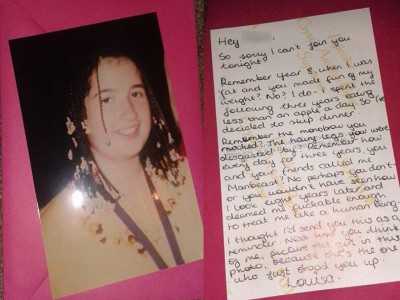 Hey
So sorry I can't join you
tonight.
Remember year 8, when I was
fat and you made fun of my
weight? No? I do - I spent the
following three years eating
less than an apple a day. So I've
decided to skip dinner.
Remember the monobrow you
mocked? The hairy legs you were
disgusted by? Remember how
every day for three years you
and your friends called me
Manbeast? No perhaps you don't -
or you wouldn't have seen how
I look eight years later and
deemed me fuckable enough
to treat me like a human being.
I thought I'd send you this as a
reminder. Next time you think
of me, picture the girl in this
photo, because she's the one
who just stood you up.
Louisa.